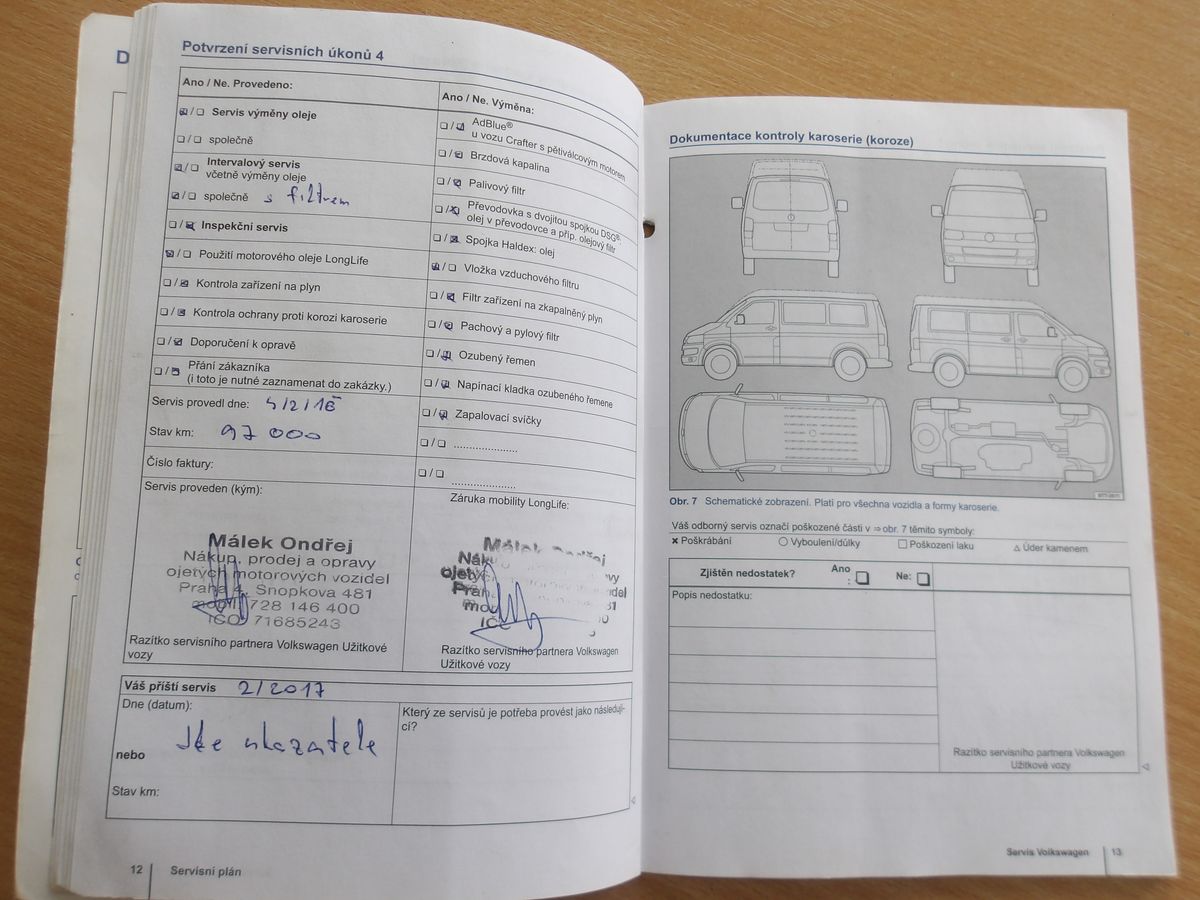 D
Potvrzení servisních úkonů 4
Ano / Ne. Provedeno:
Servis výměny oleje
společně
Intervalový servis
včetně výměny oleje
společně s filtrem
Inspekční servis
Použití motorového oleje LongLife
Kontrola zařízení na plyn
Kontrola ochrany proti korozi karoserie
Doporučení k opravě
Přání zákazníka
(i toto je nutné zaznamenat do zakázky.)
Servis provedl dne:
Stav km: 97 000
Číslo faktury:
Servis proveden (kým):
Málek Ondřej
Nákup, prodej a opravy
ojetých motorových vozidel
Praha 4, Snopkova 481
mobil 728 146 400
IČO 71685243
Razítko servisního partnera Volkswagen Užitkové
vozy
Ano / Ne. Výměna:
AdBlue®
u vozu Crafter s pětiválcovým motorem
Brzdová kapalina
Palivový filtr
Převodovka s dvojitou spojkou DSG®:
olej v převodovce a příp. olejový filtr
Spojka Haldex: olej
Vložka vzduchového filtru
Filtr zařízení na zkapalněný plyn
Pachový a pylový filtr
Ozubený řemen
Napínací kladka ozubeného řemene
Zapalovací svíčky
Záruka mobility LongLife:
Málek Ondřej
Razítko servisního partnera Volkswagen
Užitkové vozy
Váš příští servis 2/2017
Dne (datum):
nebo
Stav km:
Který ze servisů je potřeba provést jako následují-
cí?
12 Servisní plán
Dokumentace kontroly karoserie (koroze)
Obr. 7 Schematické zobrazení. Platí pro všechna vozidla a formy karoserie.
Váš odborný servis označí poškozené části v ⇒ obr. 7 těmito symboly:
× Poškrábání ○ Vyboulení/důlky □ Poškození laku △ Úder kamenem
Zjištěn nedostatek? Ano : Ne:
Popis nedostatku:
Razítko servisního partnera Volkswagen
Užitkové vozy
Servis Volkswagen 13